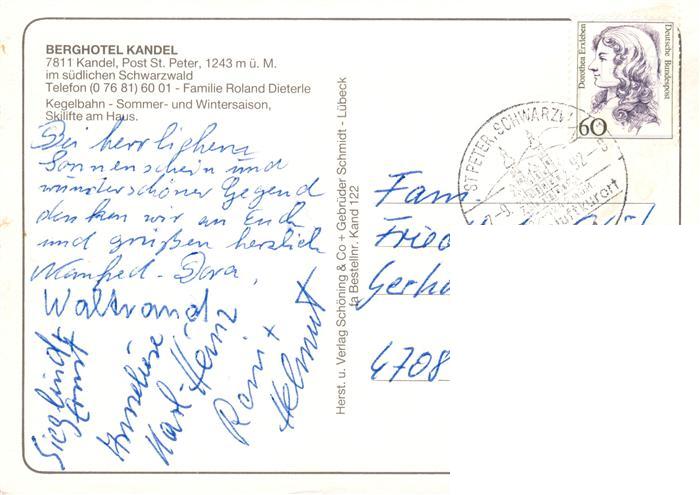 BERGHOTEL KANDEL
7811 Kandel, Post St. Peter, 1243 m ü. M.
im südlichen Schwarzwald
Telefon (0 76 81) 60 01 - Familie Roland Dieterle
Kegelbahn - Sommer- und Wintersaison,
Skilifte am Haus.
Bei herrlichem
Sonnenschein und
wunderschöner Gegend
denken wir an Euch
und grüßen herzlich
Manfred - Dora,
Waltraud
Sieglinde
Ernst
Anneliese
Karl-Heinz
Roni +
Helmut
Herst. u. Verlag Schöning & Co + Gebrüder Schmidt - Lübeck
fa Bestellnr. Kand 122
Dorothea Erxleben
Deutsche Bundespost
60
ST PETER, SCHWARZW
Luftkurort
Fam.
Fried
Gerh
4708